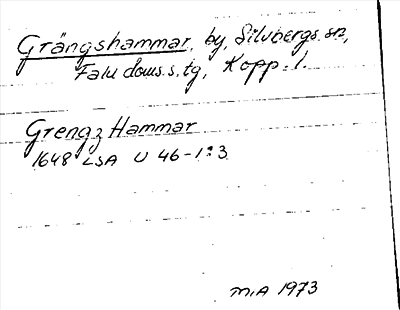 Grängshammar, by, Silvbergs sn,
Falu doms.s.tg, Kopp. l.
Grengz Hammar
1648 LSA U 46-1:3
M.A 1973